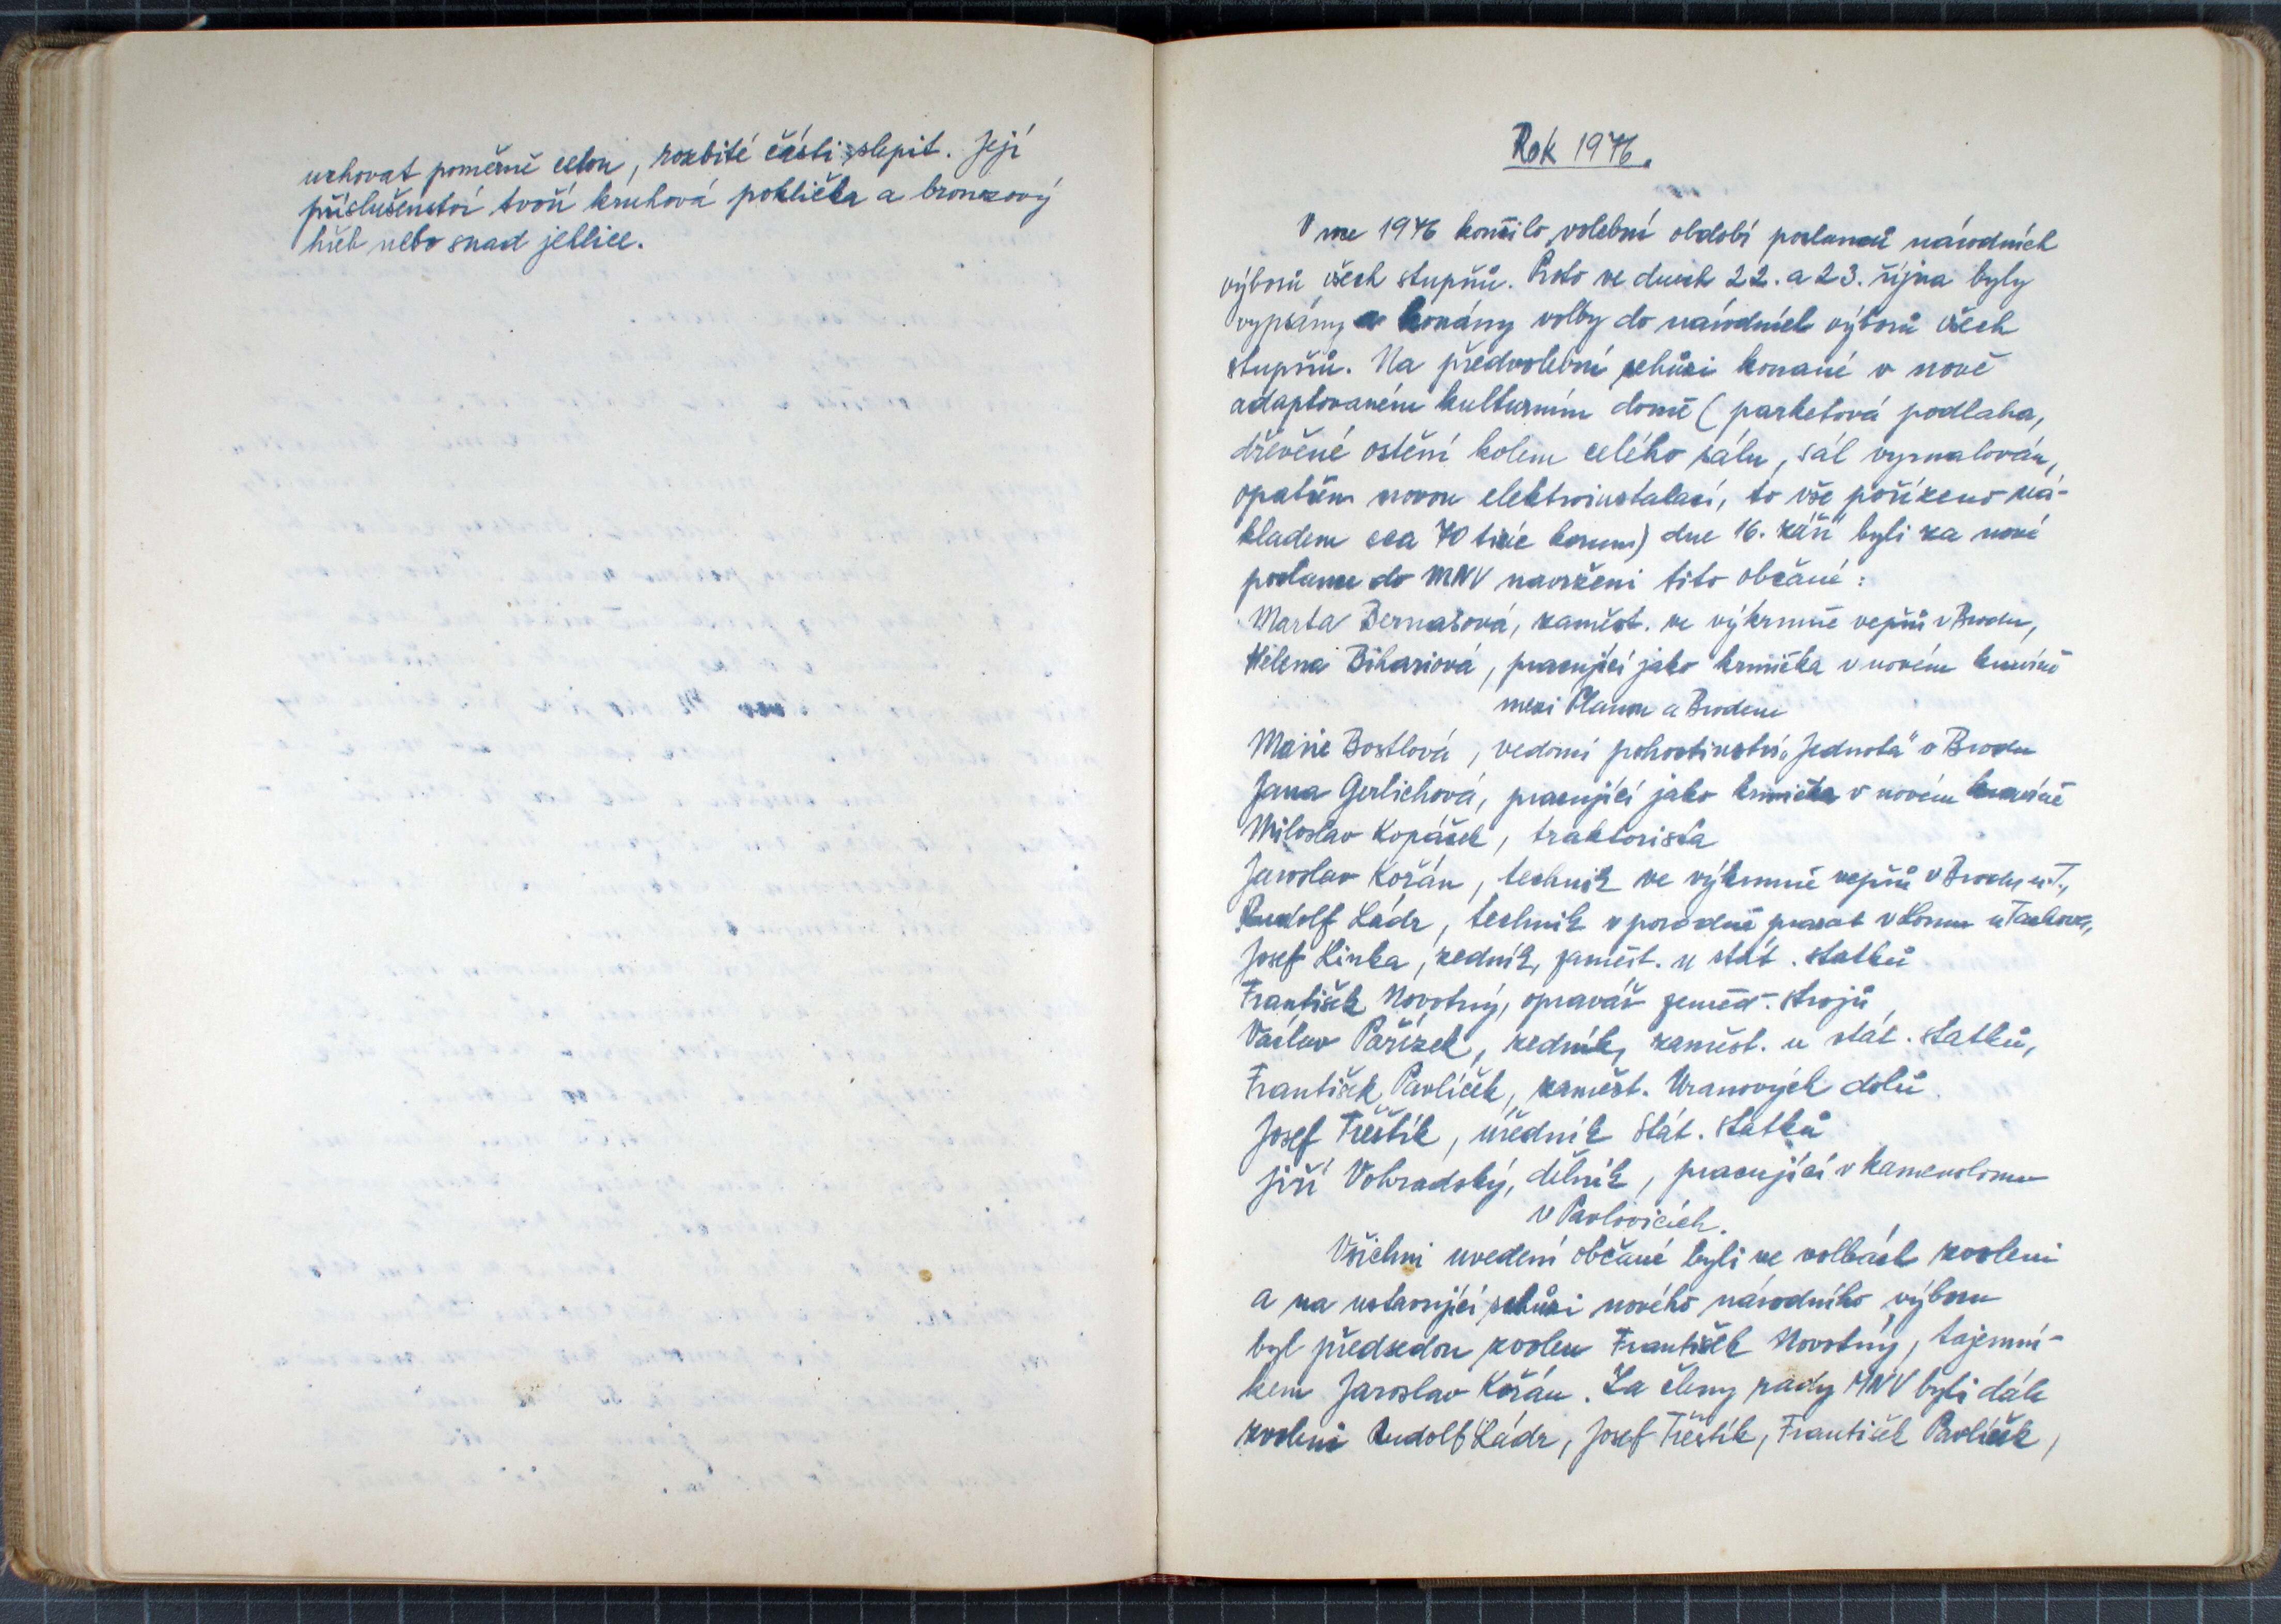 uchovat poměrně celou, rozbité části slepit. Její
příslušenství tvoří kruhová poklička a bronzový
hřeb nebo snad jehlice.
Rok 1976.
V roce 1976 končilo volební období poslanců národních
výborů všech stupňů. Proto ve dnech 22. a 23. října byly
vypsány a konány volby do národních výborů všech
stupňů. Na předvolební schůzi konané v nově
adaptovaném kulturním domě (parketová podlaha,
dřevěné ostění kolem celého sálu, sál vymalován,
opatřen novou elektroinstalací, to vše pořízeno ná-
kladem cca 70 tisíc korun) dne 16. září byli za nové
poslance do MNV navrženi tito občané:
Marta Bernasová, zaměst. ve výkrmně vepřů v Brodu,
Helena Bihariová, pracující jako krmička v novém kravíně
mezi Planou a Brodem
Marie Bostlová, vedoucí pohostinství „Jednota" v Brodu
Jana Gerlichová, pracující jako krmička v novém kravíně
Miloslav Kopášek, traktorista
Jaroslav Kořán, technik ve výkrmně vepřů v Brodu n. T.,
Rudolf Ládr, technik v porodně prasat v Lomu u Tachova,
Josef Linka, zedník, zaměst. u stát. statků
František Novotný, opravář zeměd. strojů,
Václav Pařízek, zedník, zaměst. u stát. statků,
František Pavlíček, zaměst. Uranových dolů
Josef Třeštík, úředník Stát. statků
Jiří Vohradský, dělník, pracující v kamenolomu
v Pavlovicích.
Všichni uvedení občané byli ve volbách zvoleni
a na ustavující schůzi nového národního výboru
byl předsedou zvolen František Novotný, tajemní-
kem Jaroslav Kořán. Za členy rady MNV byli dále
zvoleni Rudolf Ládr, Josef Třeštík, František Pavlíček,